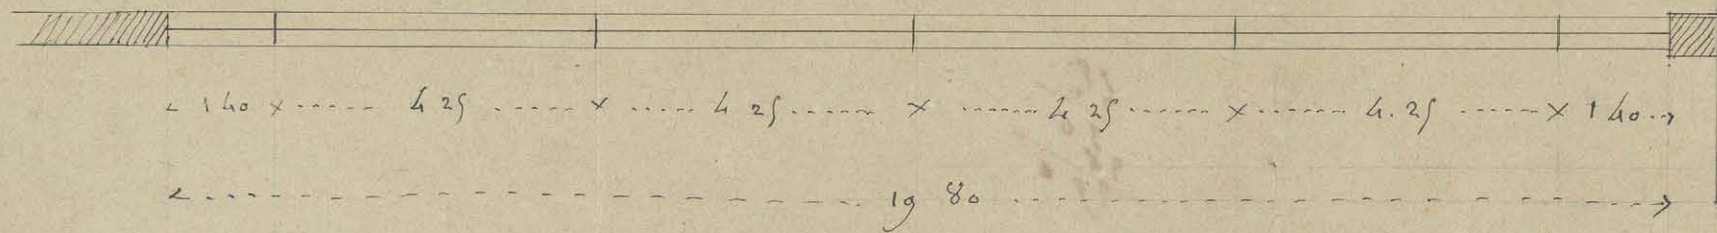 1 40 4 25 4 25 4 25 4.25 1 40
19 80